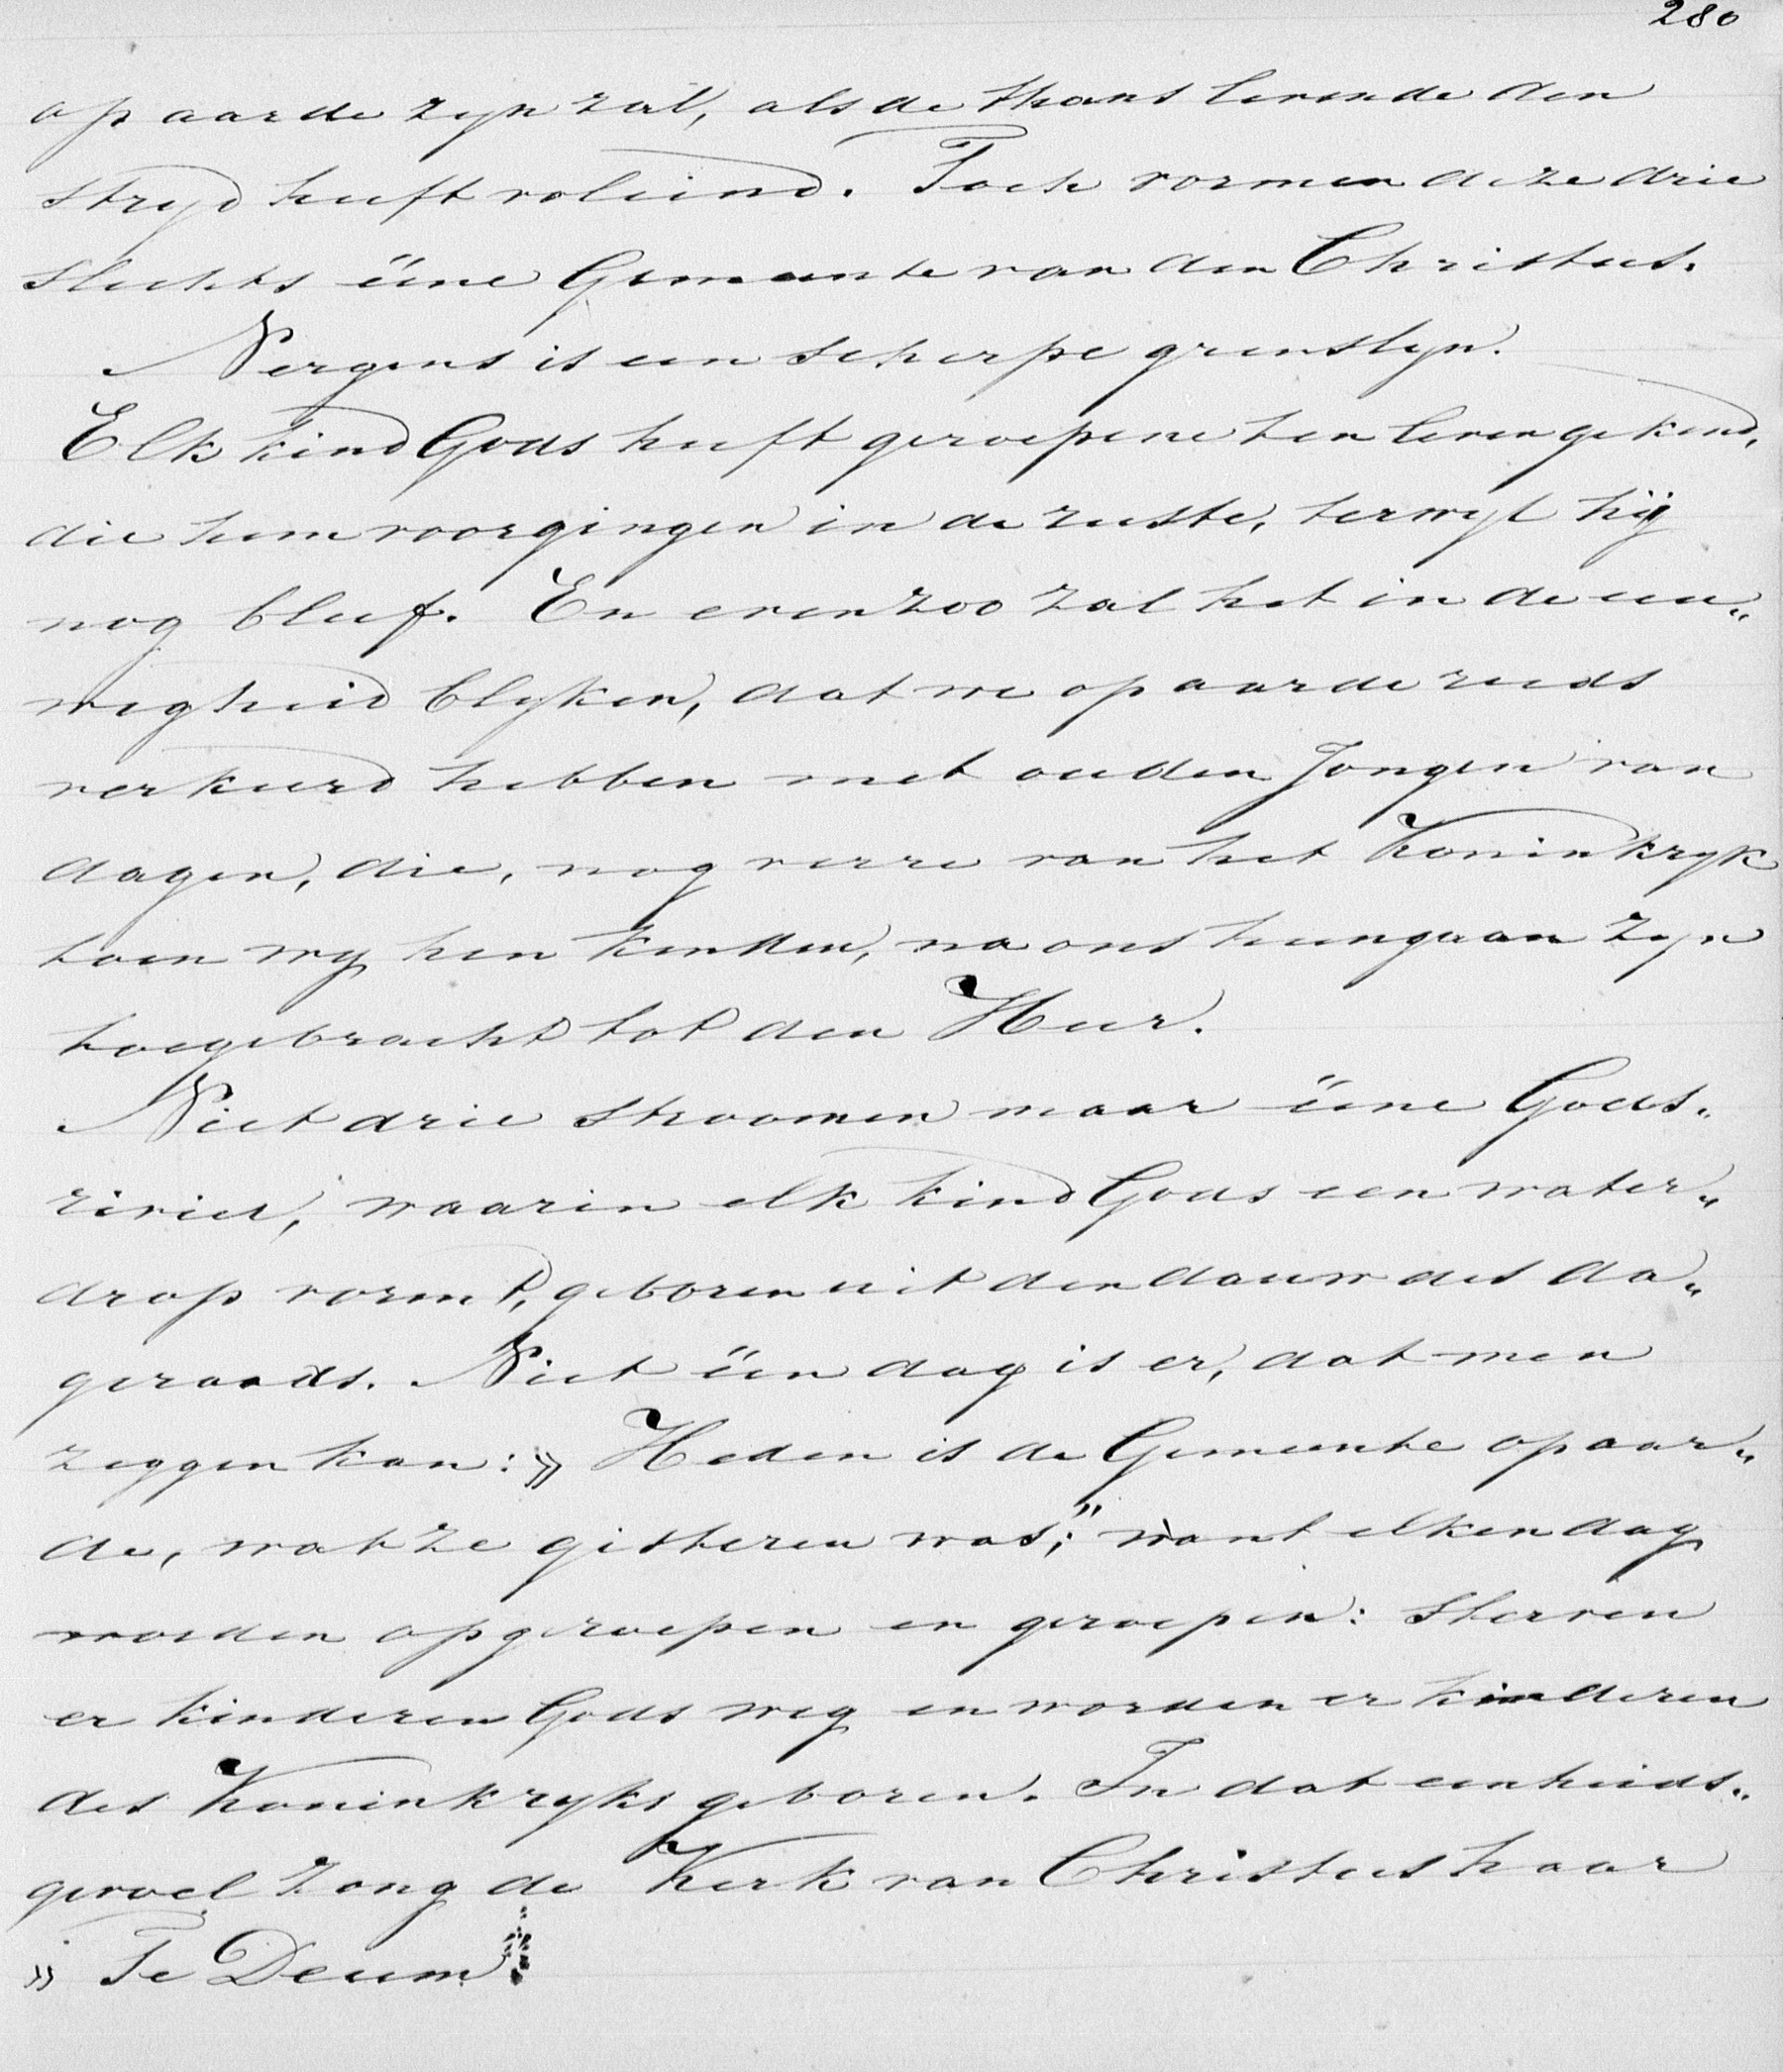 280
op aarde zyn zal, als de thans levende den
stryd heeft voleind. Toch vormen deze drie
slechts ééne Gemeente van den Christus.
Nergens is een scherpe grenslyn.
Elk kind Gods heeft geroepene ten leven gekend,
die hem voorgingen in de ruste, terwyl hij
nog bleef. En evenzoo zal het in de eeu„
wigheid blyken, dat we op aarde reeds
verkeerd hebben met ouden Jongen van
dagen, die, nog verre van het Koninkryk
toen wy hen kenden, na ons heengaan zyn
toegebracht tot den Heer.
Niet drie stroomen maar ééne Gods„
rivier, waarin elk kind Gods een water„
drop vormt, geboren uit den dauw des da„
geraads. Niet één dag is er, dat men
zeggen kan: » Heden is de Gemeente op aar„
de, wat ze gisteren was;" want elken dag
worden opgeroepen en geroepen: sterven
er kinderen Gods weg en worden er kinderen
des Koninkryks geboren. In dat eenheids„
gevoel zong de Kerk van Christus haar
» Te Deum"